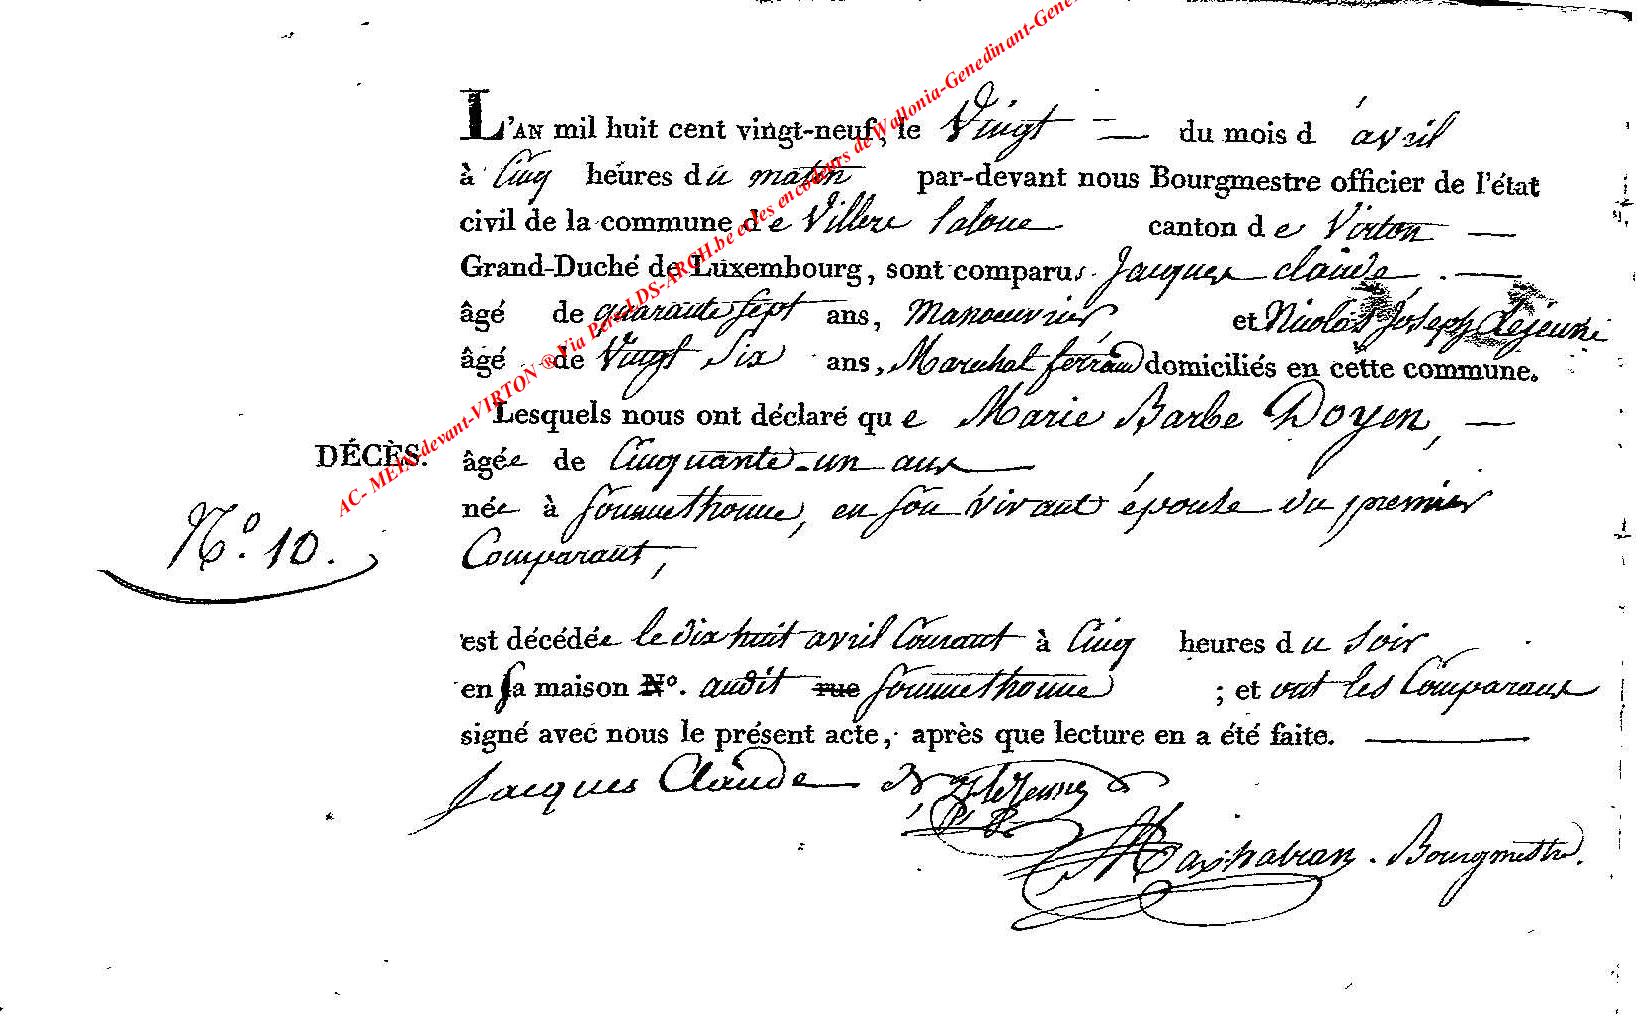 L'AN mil huit cent vingt-neuf, le Vingt — du mois d'avril
à Cinq heures du matin par-devant nous Bourgmestre officier de l'état
civil de la commune de Villers laloue canton de Virton —
Grand-Duché de Luxembourg, sont comparus Jacques claude, —
âgé de quarante sept ans, Manoeuvrier, et Nicolas Joseph Lejeune
âgé de Vingt Six ans, Marechal ferrand domiciliés en cette commune.
Lesquels nous ont déclaré que Marie Barbe Doyen, —
DÉCÈS. âgée de Cinquante-un ans —
née à Sommethonne, en Son vivant épouse du premier
N.° 10. Comparant,
est décédée le dix huit avril Courant à Cinq heures du Soir
en sa maison N°. audit rue Sommethonne ; et ont les Comparans
signé avec nous le présent acte, après que lecture en a été faite. —
Jacques Claude N J leJeune
Bourgmestre.
AC- MEIX-devant-VIRTON ® Via Persol LDS-ARCH.be et les encodeurs de Wallonia-Genedinant-Gene